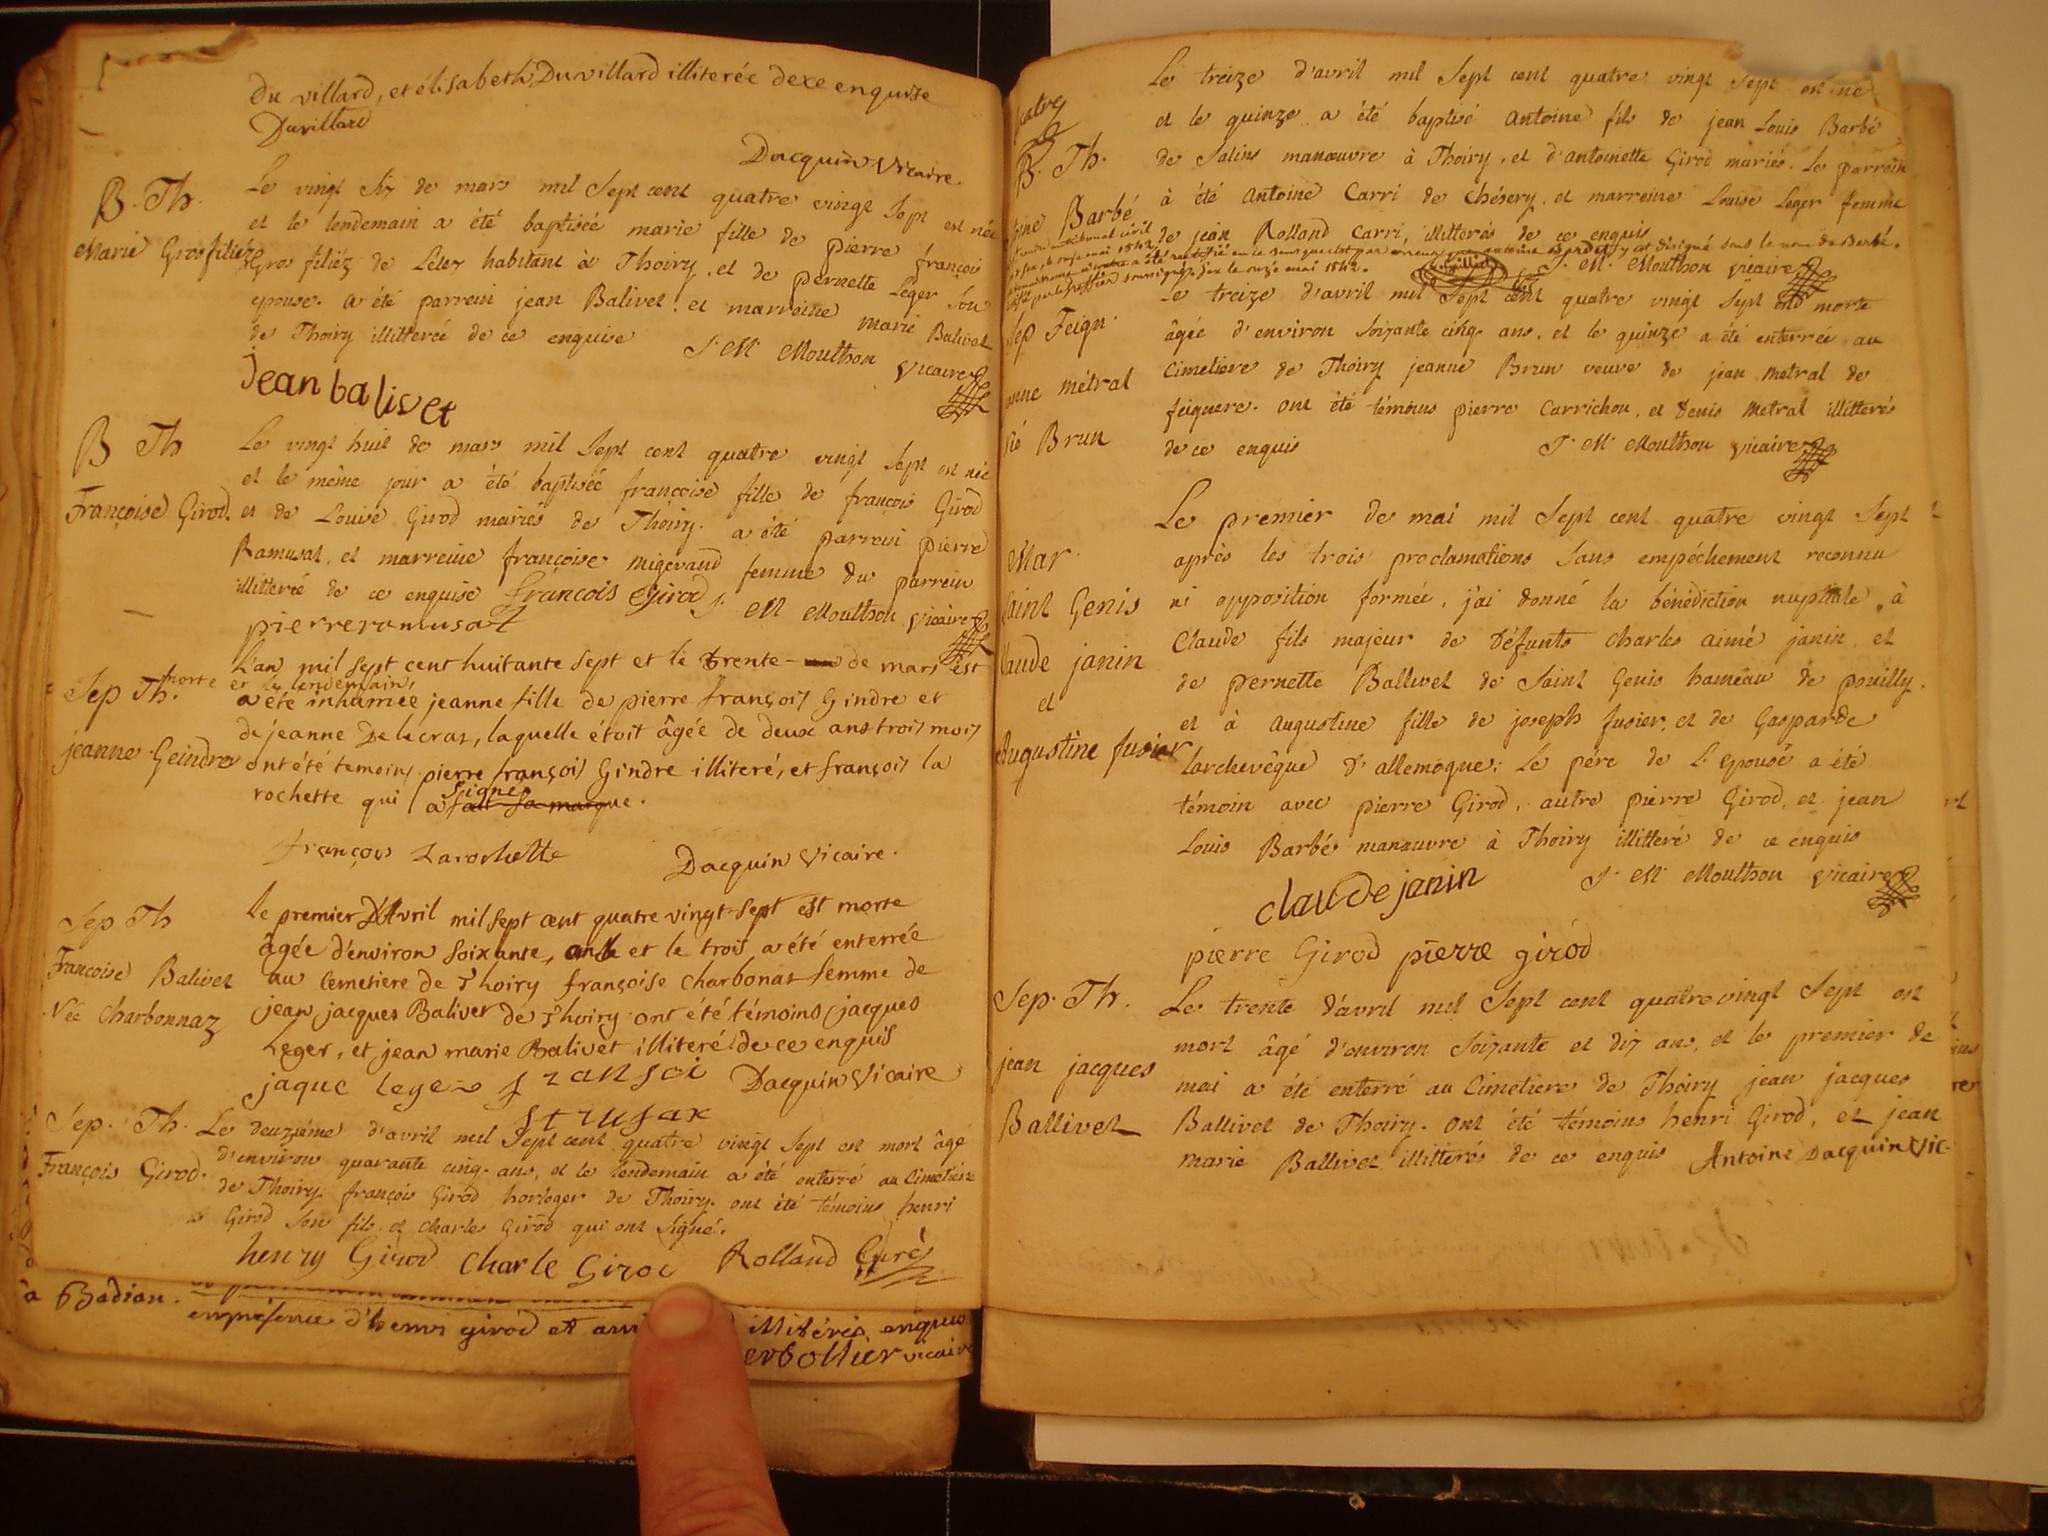 Du villard, et élisabeth Duvillard illiterée dexe enquise
Duvillard
Dacquin Vicaire.
B. Th.
Marie Grosfiliéz
Le vingt six de mars mil sept cent quatre vingt sept est née
et le lendemain a été baptisée marie fille de pierre françois
Gros filiéz de Lélex habitant à Thoiry, et de pernette Leger son
epouse. a été parrein jean Balivet, et marreine marie Balivet
de Thoiry illitterée de ce enquise J. M. Mouthon vicaire
jean balivet
B Th
Françoise Girod.
Le vingt huit de mars mil sept cent quatre vingt sept est née
et le même jour a été baptisée françoise fille de françois Girod
et de Louise Girod mariés de Thoiry. a été parrein pierre
Ramusat, et marreine françoise migevand femme du parrein
illitterée de ce enquise françois Girod J. M. Mouthon vicaire
pierreramusat
Sep Th.
jeanne Geindre
L'an mil sept cent huitante sept et le trente de mars est
morte et le lendemain
a été inhumée jeanne fille de pierre françois Gindre et
de jeanne Delecraz, laquelle étoit âgée de deux ans trois mois
ont été temoins pierre françois Gindre illiteré, et françois la
rochette qui a signé fait sa marque.
françois Larochette Dacquin Vicaire.
Sep Th
Francoise Balivet
Née Charbonnaz
Le premier D'Avril mil sept cent quatre vingt sept est morte
âgée d'environ soixante, ans et le trois a été enterrée
au cemetiere de Thoiry françoise charbonaz femme de
jean jacques Balivet de Thoiry. ont été témoins jacques
Leger, et jean marie Balivet illiteré de ce enquis
jaque leger fransoi Dacquin Vicaire
Sep. Th.
François Girod.
Le deuzième d'avril mil sept cent quatre vingt sept est mort âgé
d'environ quarante cinq ans, et le lendemain a été enterré au Cimetière
de Thoiry françois Girod horloger de Thoiry. ont été témoins henri
Girod son fils et charles Girod qui ont signé.
henry Girod Charle Girod Rolland Curé
a Badian.
en presence d'henri girod et illitérés enquis
vicaire
B. Th.
Barbé
Le treize d'avril mil sept cent quatre vingt sept est né
et le quinze a été baptisé antoine fils de jean Louis Barbé
de Salins manœuvre à Thoiry, et d'antoinette Girod mariés. Le parrein
à été antoine Carri de Chésery, et marreine Louise Leger femme
de jean Rolland Carri, illitterés de ce enquis
J. M. Mouthon vicaire
Sep Feign.
métral
né Brun
Le treize d'avril mil sept cent quatre vingt sept est morte
âgée d'environ soixante cinq ans, et le quinze a été enterrée au
Cimetiere de Thoiry jeanne Brun veuve de jean metral de
feiguere. ont été témoins pierre Carrichon, et Denis Metral illitterés
de ce enquis J. M. Mouthon vicaire
Mar.
Saint Genis
Claude janin
et
Augustine fusier
Le premier de mai mil sept cent quatre vingt sept
après les trois proclamations sans empéchement reconnu
ni opposition formée, j'ai donné la bénédiction nuptiale, à
Claude fils majeur de Défunts charles aimé janin, et
de pernette Ballivet de Saint Genis hameau de pouilly.
et à augustine fille de joseph fusier, et de Gasparde
Larchevêque d'allemogne: Le pére de L'epouse a été
témoin avec pierre Girod, autre pierre Girod, et jean
Louis Barbé manœuvre à Thoiry illitteré de ce enquis
J. M. Mouthon vicaire
claude janin
pierre Girod pierre giród
Sep. Th.
jean jacques
Ballivet
Le trente d'avril mil sept cent quatre vingt sept est
mort âgé d'environ soixante et dix ans, et le premier de
mai a été enterré au Cimetiere de Thoiry jean jacques
Ballivet de Thoiry. ont été témoins henri Girod, et jean
marie Ballivet illitterés de ce enquis Antoine Dacquin Vic.